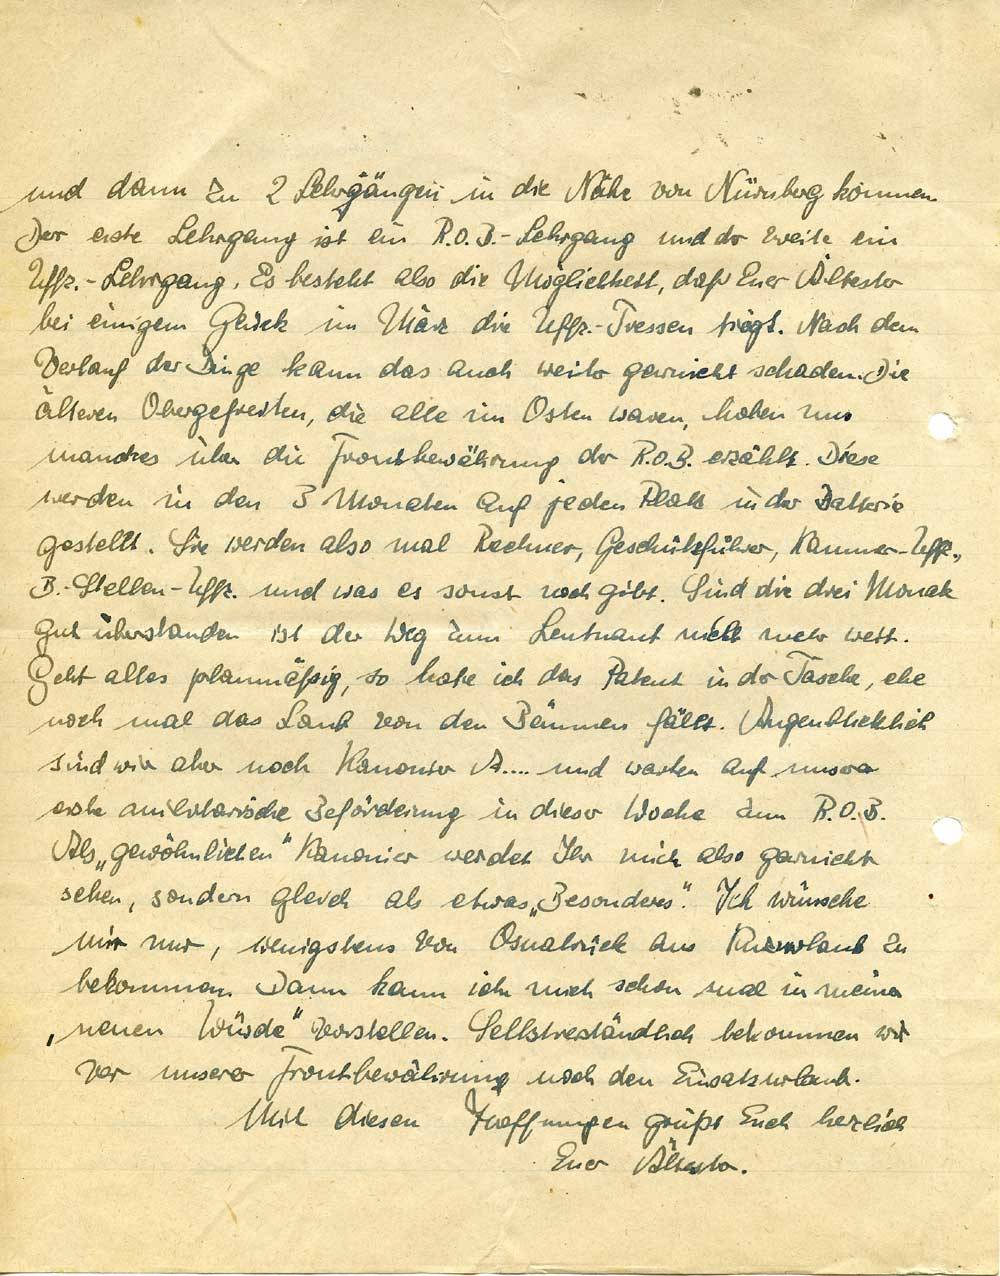 und dann zu 2 Lehrgängen in die Nähe von Nürnberg kommen.
Der erste Lehrgang ist ein R.O.B.-Lehrgang und der zweite ein
Uffz.-Lehrgang. Es besteht also die Möglichkeit, daß Euer Ältester
bei einigem Glück im März die Uffz.-Tressen trägt. Nach dem
Verlauf der Dinge kann das auch weiter garnicht schaden. Die
älteren Obergefreiten, die alle im Osten waren, haben uns
manches über die Frontbewährung der R.O.B. erzählt. Diese
werden in den 3 Monaten auf jeden Platz in der Batterie
gestellt. Sie werden also mal Rechner, Geschützführer, Kammer-Uffz.,
B.-Stellen-Uffz. und was es sonst noch gibt. Sind die drei Monate
gut überstanden ist der Weg zum Leutnant nicht mehr weit.
Geht alles planmäßig, so habe ich das Patent in der Tasche, ehe
noch mal das Laub von den Bäumen fällt. Augenblicklich
sind wir aber noch Kanonier A.... und warten auf unsere
erste militärische Beförderung in dieser Woche zum R.O.B.
Als „gewöhnlichen“ Kanonier werdet Ihr mich also garnicht
sehen, sondern gleich als etwas „Besonderes“. Ich wünsche
mir nur, wenigstens von Osnabrück aus Kurzurlaub zu
bekommen. Dann kann ich mich schon mal in meiner
„neuen Würde“ vorstellen. Selbstverständlich bekommen wir
vor unserer Frontbewährung noch den Einsatzurlaub.
Mit diesen Hoffnungen grüßt Euch herzlich
Euer Ältester.